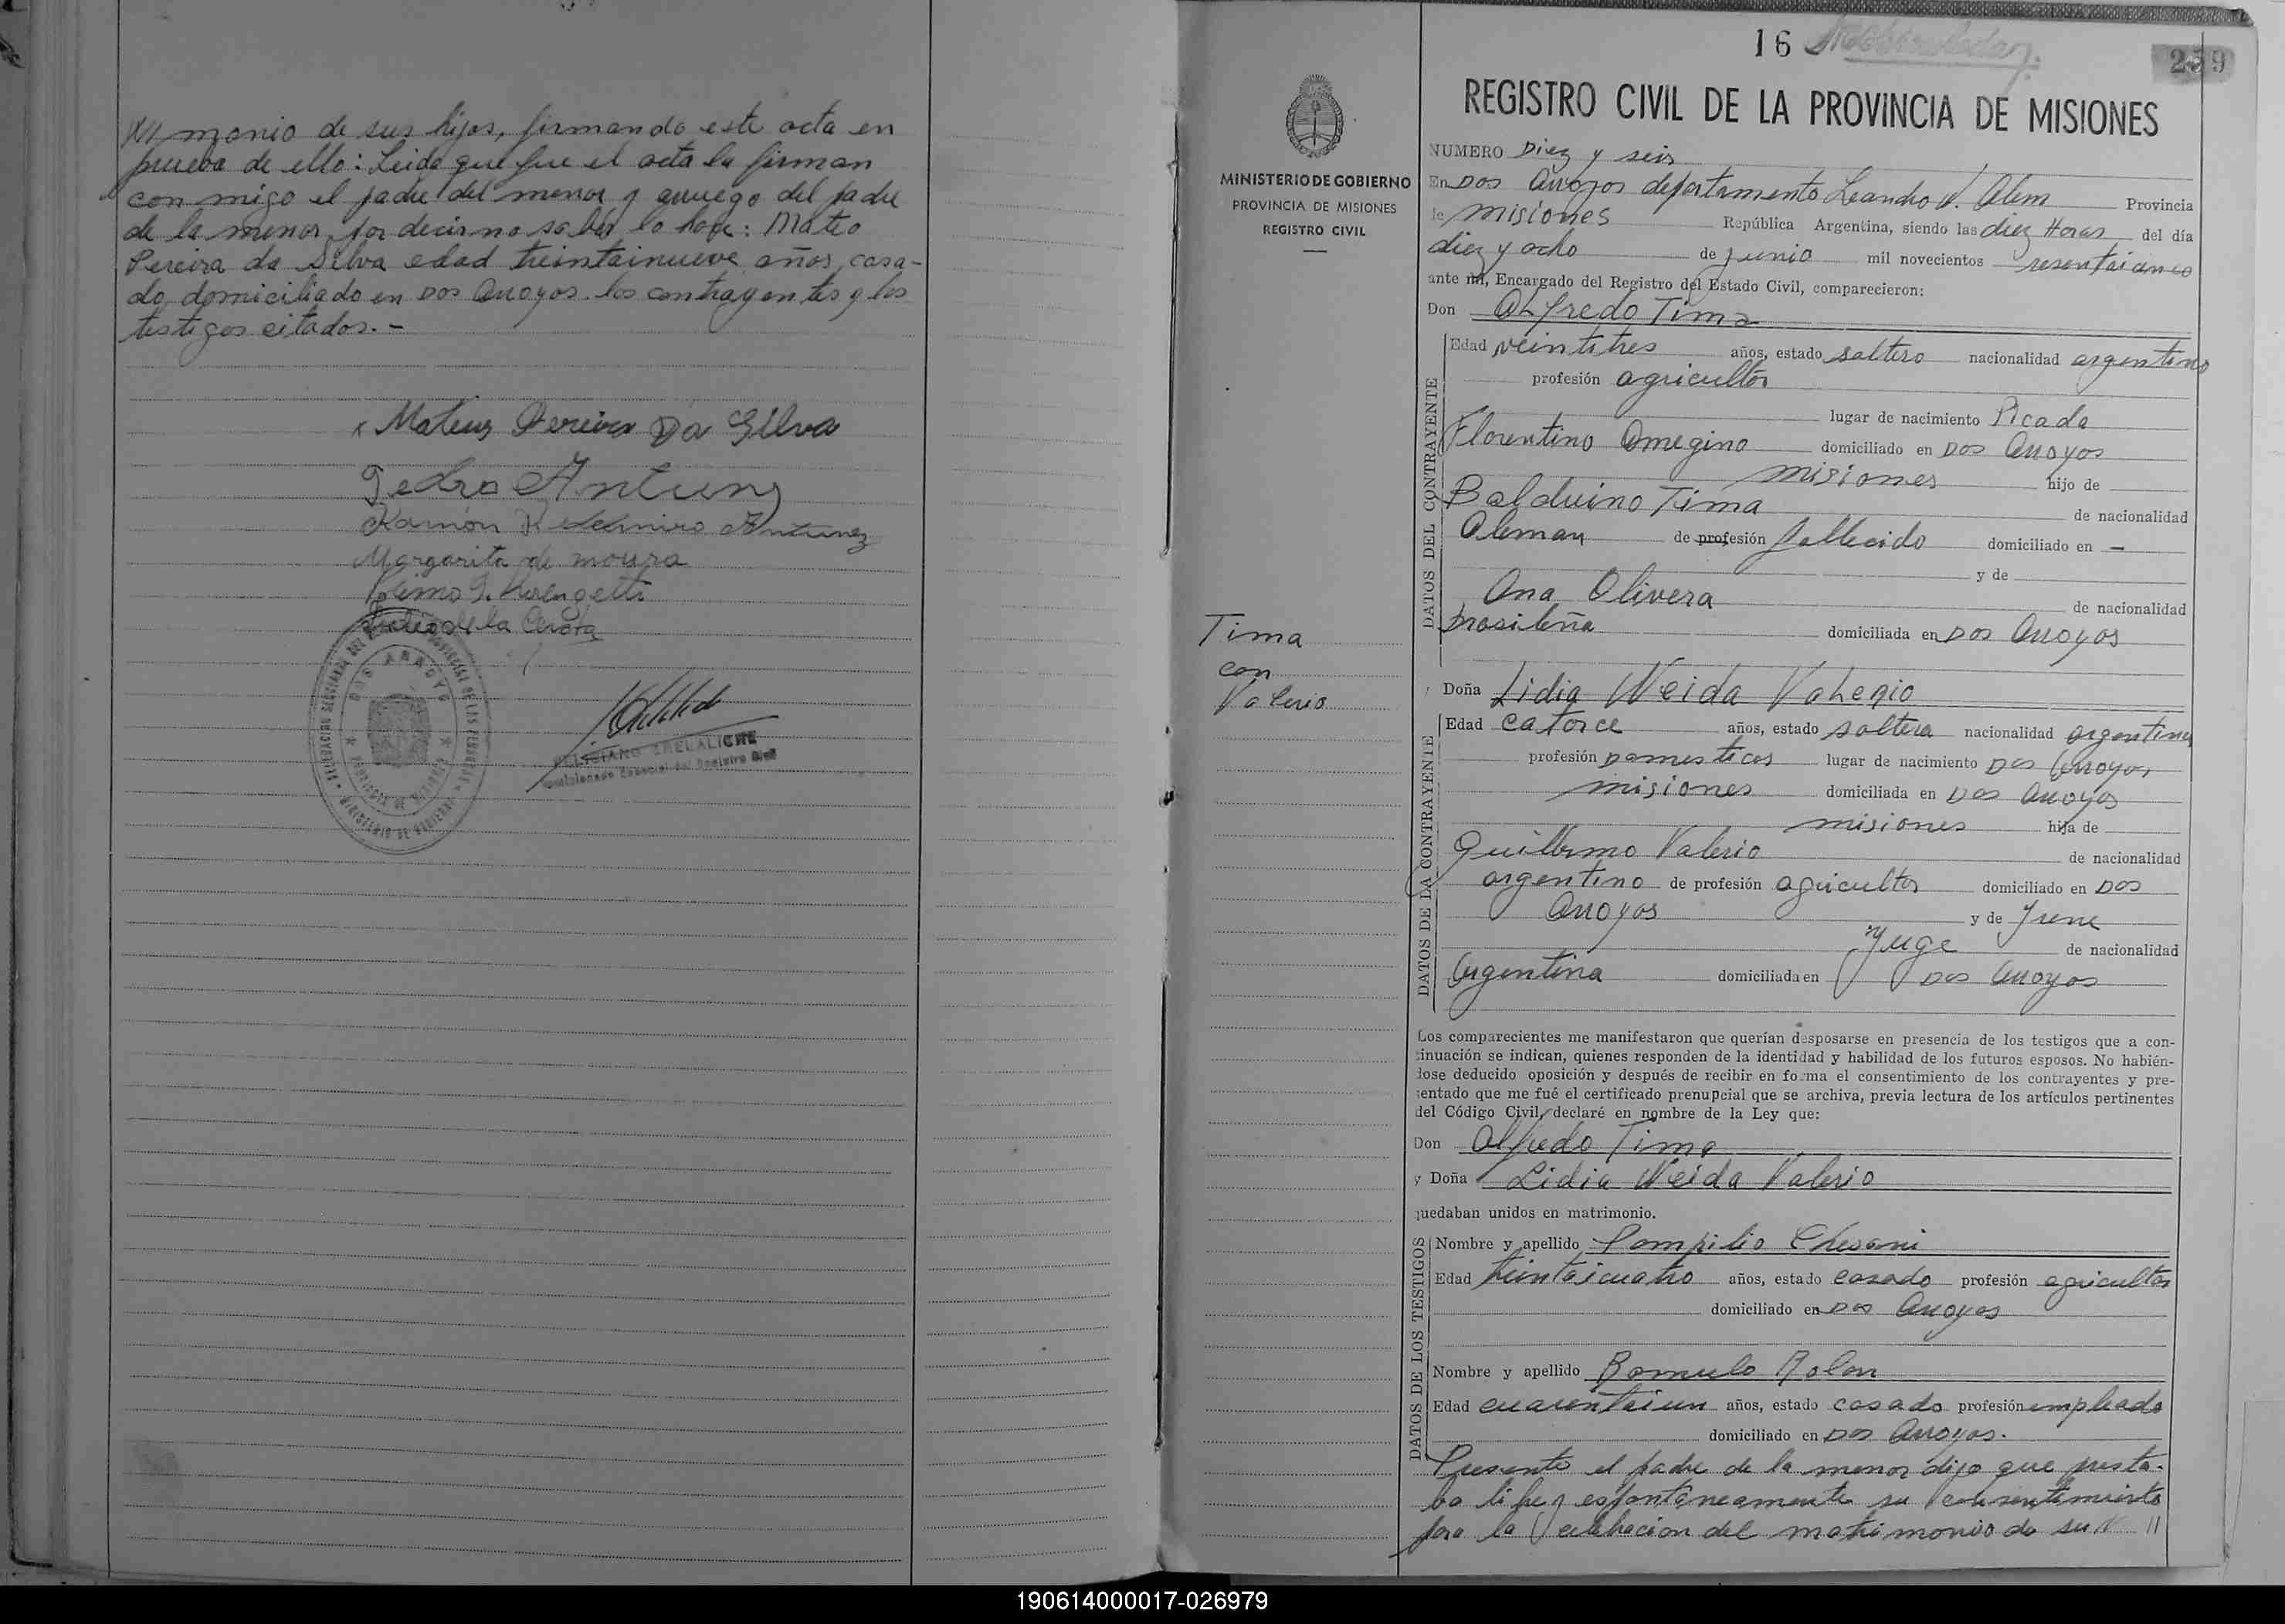 monio de sus hijos, firmando este acta en
prueba de ello: Leida que fue el acta la firman
con migo el padre del menor y arruego del padre
de la menor por decir no saber lo hace: Mateo
Pereira da Silva edad treintainueve años, casa-
do, domiciliado en Dos Arroyos. los contrayentes y los
testigos citados.-
x Mateus Pereira Da Silva
Pedro Antunez
Ramón Antunez
Margarita de moura
de la
DOS ARROYOS
PROVINCIA DE MISIONES
MINISTERIO DE GOBIERNO
Registro Civil
16
259
REGISTRO CIVIL DE LA PROVINCIA DE MISIONES
MINISTERIO DE GOBIERNO
PROVINCIA DE MISIONES
REGISTRO CIVIL
NUMERO Diez y seis
En Dos Arroyos departamento Leandro N. Alem Provincia
de misiones República Argentina, siendo las diez Horas del día
diez y ocho de junio mil novecientos sesentaicinco
ante mí, Encargado del Registro del Estado Civil, comparecieron:
Don Alfredo Tima
DATOS DEL CONTRAYENTE
Edad veintitres años, estado soltero nacionalidad argentino
profesión agricultor
lugar de nacimiento Picada
Florentino Omegino domiciliado en Dos Arroyos
misiones hijo de
Balduino Tima de nacionalidad
Aleman de profesión fallecido domiciliado en —
y de
Ana Olivera de nacionalidad
brasileña domiciliada en Dos Arroyos
Tima
con
Valerio
Doña Lidia Neida Valerio
DATOS DE LA CONTRAYENTE
Edad catorce años, estado soltera nacionalidad argentina
profesión Domesticas lugar de nacimiento Dos Arroyos
misiones domiciliada en Dos Arroyos
misiones hija de
Guillermo Valerio de nacionalidad
argentino de profesión agricultor domiciliado en Dos
Arroyos y de Irene
Yuge de nacionalidad
Argentina domiciliada en Dos Arroyos
Los comparecientes me manifestaron que querían desposarse en presencia de los testigos que a con-
tinuación se indican, quienes responden de la identidad y habilidad de los futuros esposos. No habién-
dose deducido oposición y después de recibir en forma el consentimiento de los contrayentes y pre-
sentado que me fué el certificado prenupcial que se archiva, previa lectura de los artículos pertinentes
del Código Civil, declaré en nombre de la Ley que:
Don Alfredo Tima
y Doña Lidia Neida Valerio
quedaban unidos en matrimonio.
DATOS DE LOS TESTIGOS
Nombre y apellido Pompilio Chesani
Edad treintaicuatro años, estado casado profesión agricultor
domiciliado en Dos Arroyos
Nombre y apellido Romulo Rolon
Edad cuarentaiun años, estado casado profesión empleado
domiciliado en Dos Arroyos.
Presente el padre de la menor dijo que presta-
ba libre y espontáneamente su consentimiento
para la celebracion del matrimonio de su //
190614000017-026979